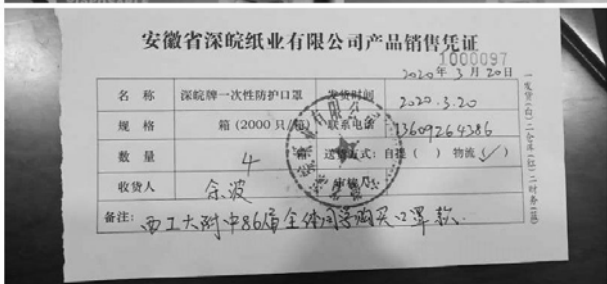 安徽省深皖纸业有限公司产品销售凭证
1000097
2020年3月20日
名 称 深皖牌一次性防护口罩 发货时间 2020.3.20
规 格 箱(2000 只/箱) 联系电话 13609264386
数 量 4 箱 送货方式:自提( ) 物流(✓)
收货人 余波
备注:西工大附中86届全体同学购买口罩款.
一发货(白)二仓库(红)三财务(蓝)